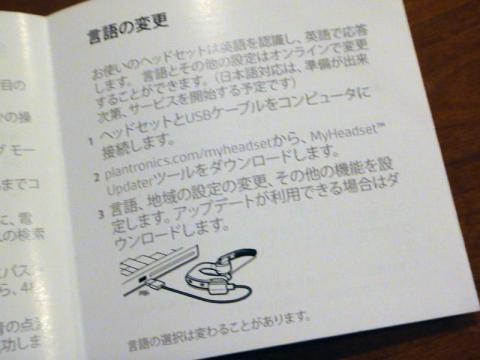 言語の変更
お使いのヘッドセットは英語を認識し、英語で応答
します。 言語とその他の設定はオンラインで変更
することができます。（日本語対応は、準備が出来
次第、サービスを開始する予定です）
1 ヘッドセットとUSBケーブルをコンピュータに
接続します。
2 plantronics.com/myheadsetから、MyHeadset™
Updaterツールをダウンロードします。
3 言語、地域の設定の変更、その他の機能を設
定します。アップデートが利用できる場合はダ
ウンロードします。
言語の選択は変わることがあります。
目の
の操
モー
までコ
に、電
の検索
パス
ら、4
音の点
功しま